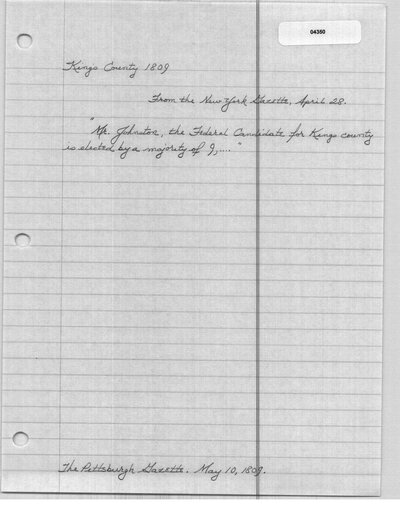 04350
Kings County 1809
From the New York Gazette, April 28.
"Mr. Johnston, the Federal Candidate for Kings county
is elected by a majority of 9,...."
The Pittsburgh Gazette. May 10, 1809.